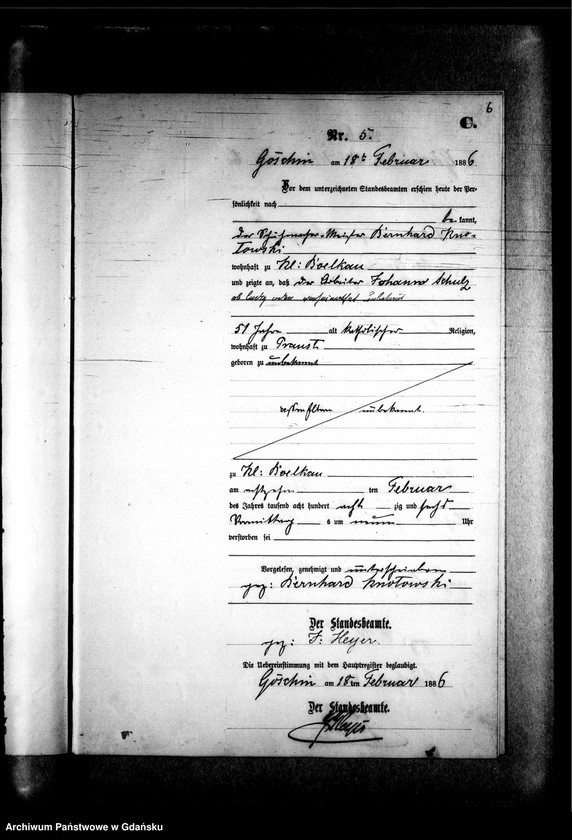 6
C.
Nr. 5.
Göschin am 18t Februar 1886
Vor dem unterzeichneten Standesbeamten erschien heute der Per-
sönlichkeit nach
be kannt,
der Schuhmacher-Meister Bernhard Kno-
towski
wohnhaft zu Kl: Boelkau
und zeigte an, daß der Arbeiter Johann Schulz
ob ledig oder verheirathet
51 Jahre alt katholischer Religion,
wohnhaft zu Praust
geboren zu unbekannt
dessen Eltern unbekannt.
zu Kl: Boelkau
am achtzehn ten Februar
des Jahres tausend acht hundert acht zig und sechs
Vormittag s um neun Uhr
verstorben sei
Vorgelesen, genehmigt und unterschrieben
gez: Bernhard Knotowski
Der Standesbeamte.
gez: F. Heyer.
Die Uebereinstimmung mit dem Hauptregister beglaubigt.
Göschin am 18ten Februar 1886
Der Standesbeamte.
Heyer
Archiwum Państwowe w Gdańsku